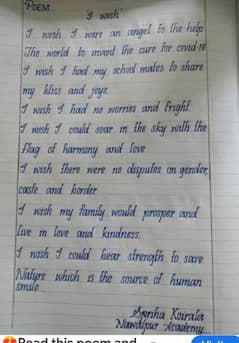 POEM
'I wish'
I wish I were an angel to the help
The world to invent the cure for covid-19
I wish I had my school mates to share
my bliss and joys.
I wish I had no worries and fright.
I wish I could soar in the sky with the
flag of harmony and love
I wish there were no disputes on gender,
caste and border
I wish my family would prosper and
live in love and kindness.
I wish I could hear strength to save
Nature which is the source of human
smile.
Koirala
Academy
Read this poem and